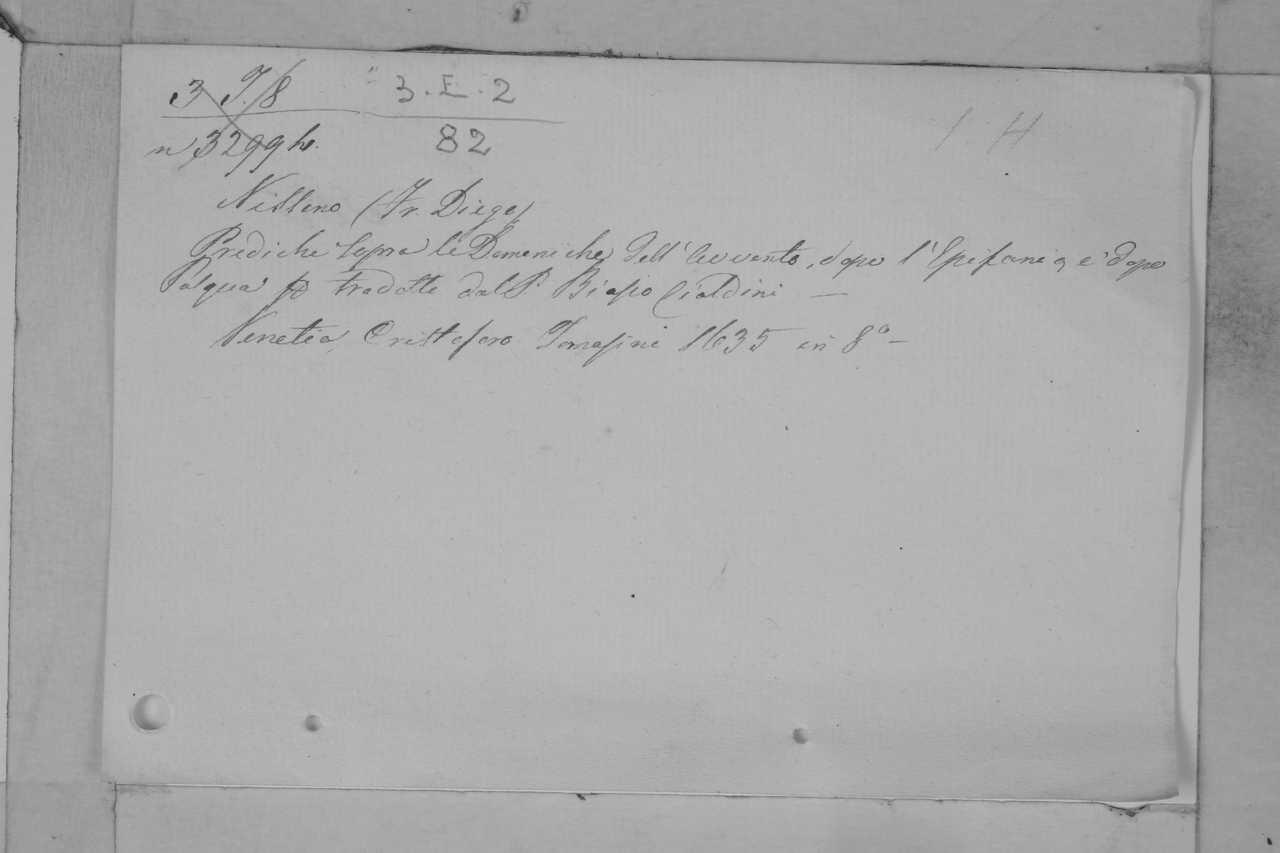 3 T./8 3.E.2
n 3299 h. 82
1. H
Nisseno (Fr. Diego)
Prediche sopra le Domeniche dell'Avvento, dopo l'Epifania, e dopo
Pasqua tradotte dal P. Biasio Cialdini —
Venetia, Cristoforo Tomasini 1635 in 8° —